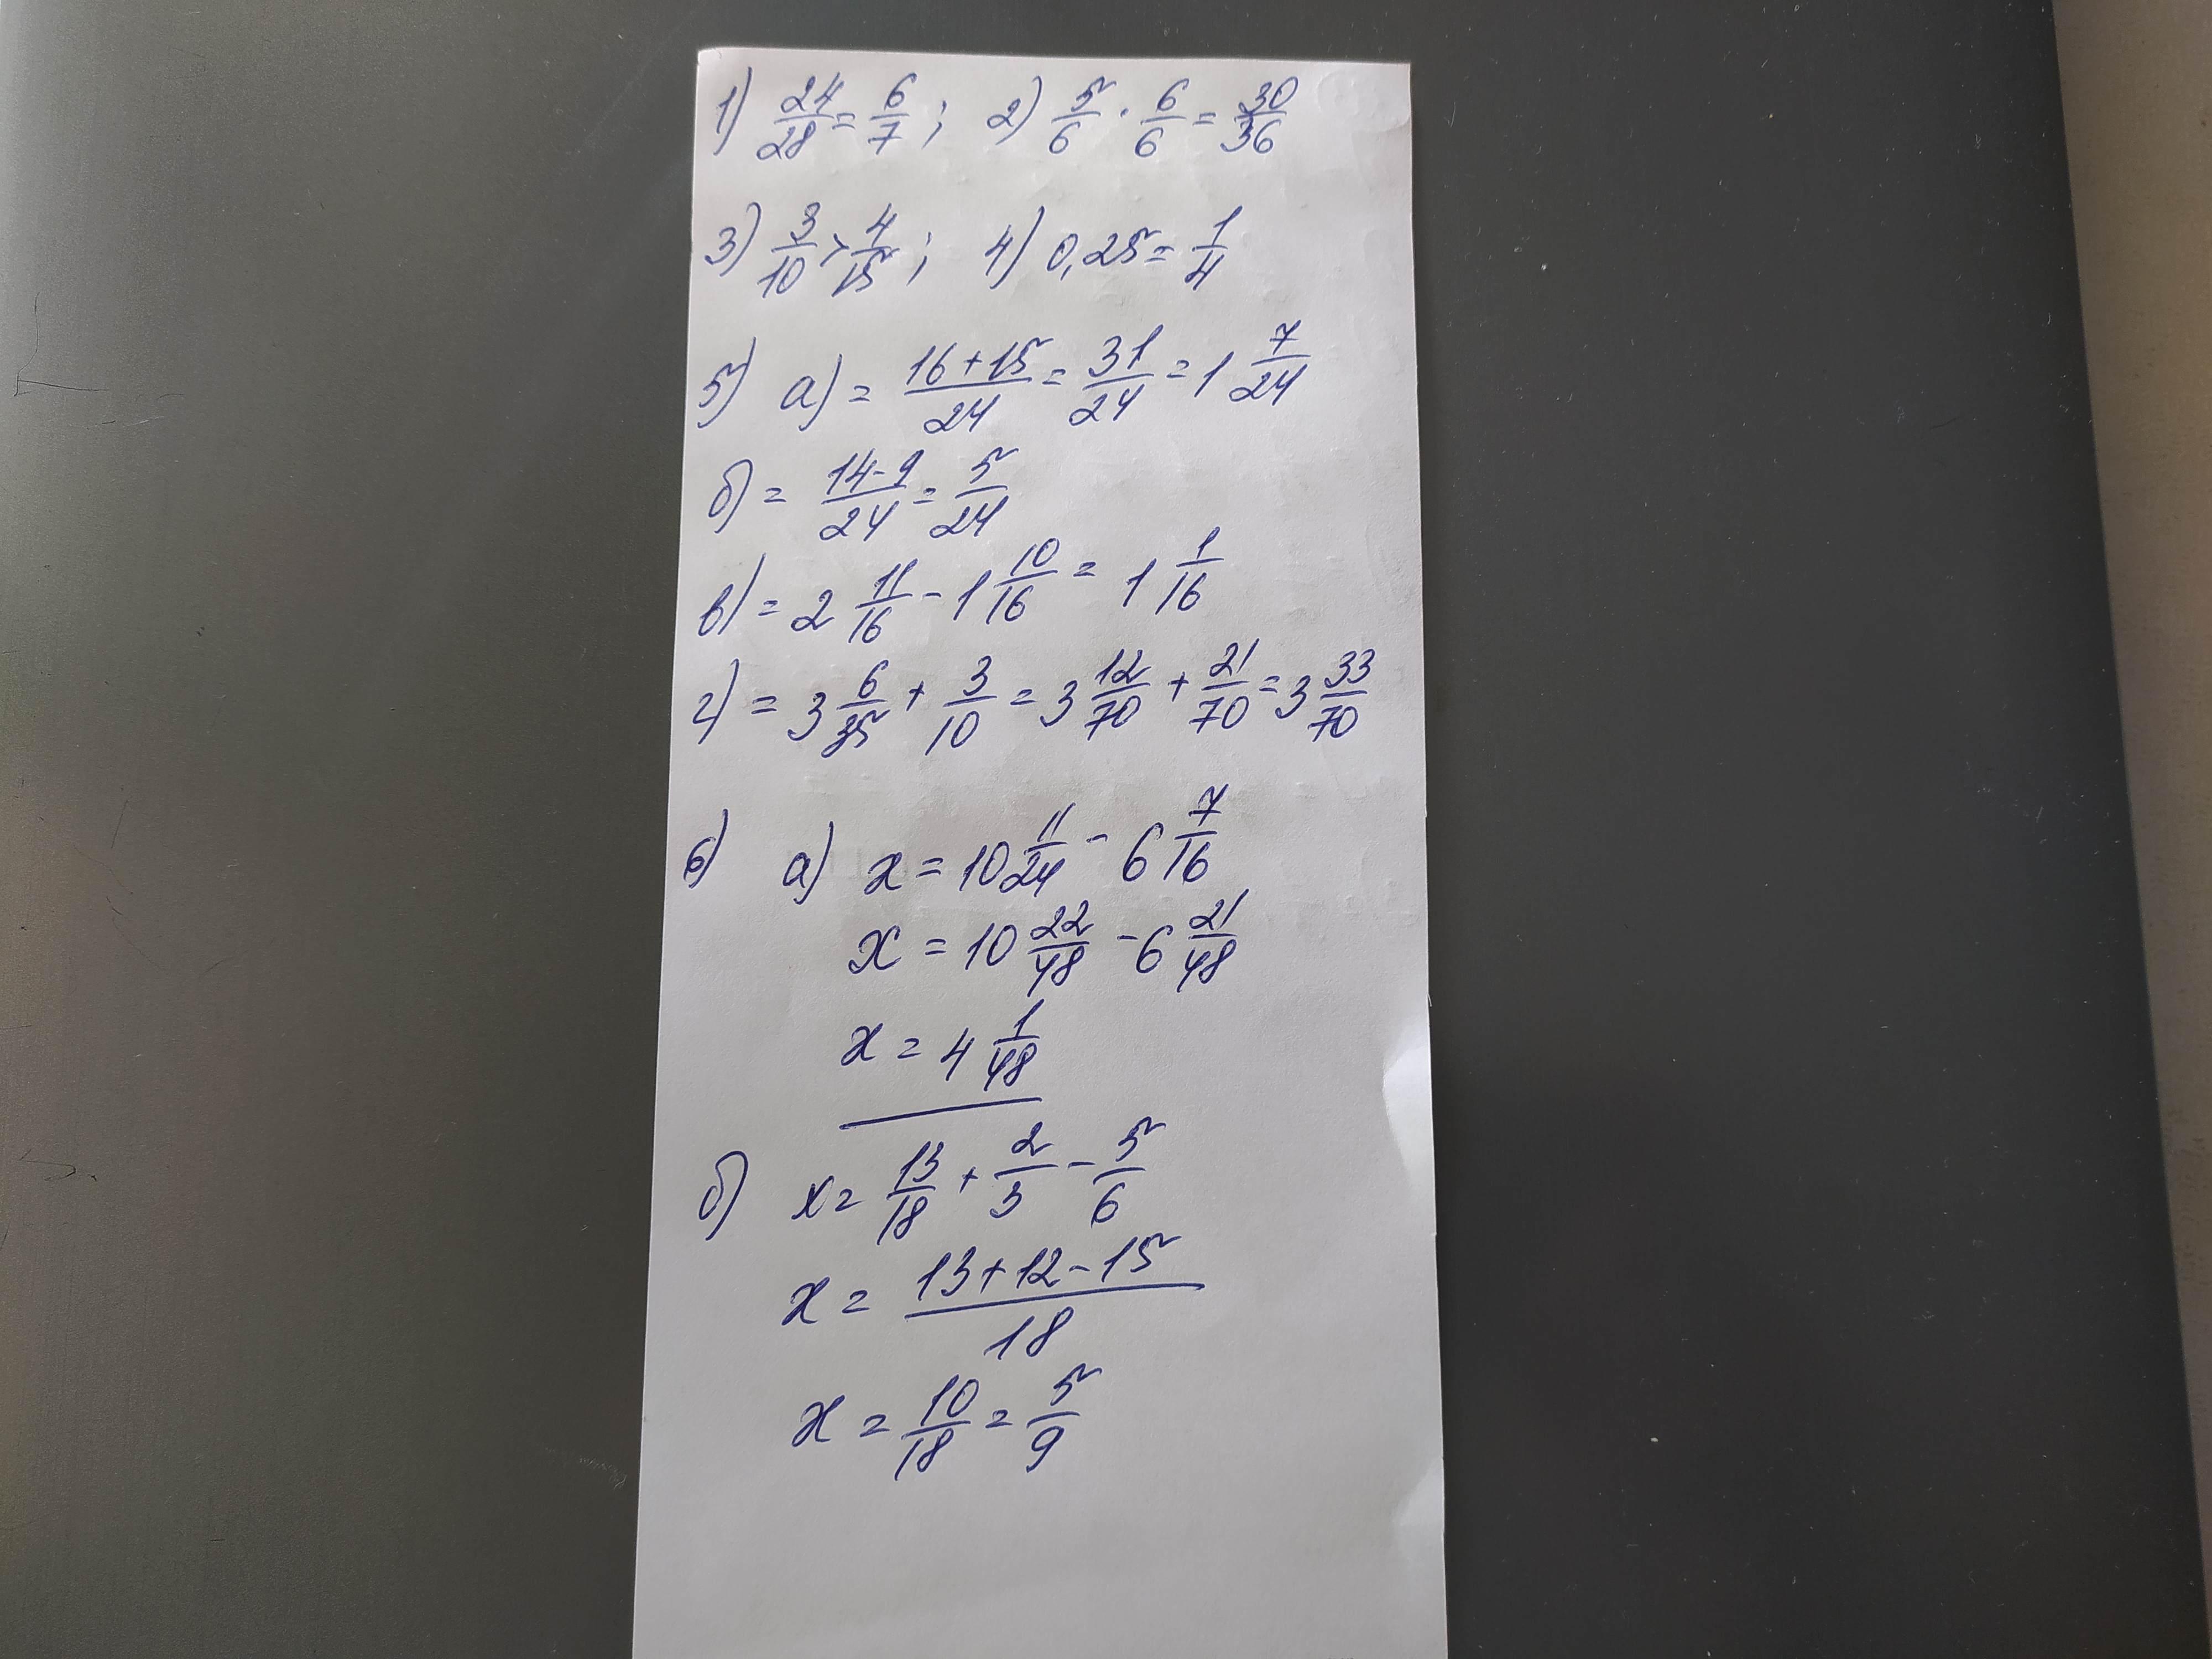 1) 24/28 = 6/7 ; 2) 5/6 · 6/6 = 30/36
3) 3/10 > 4/15 ; 4) 0,25 = 1/4
5) а) = 16+15/24 = 31/24 = 1 7/24
б) = 14-9/24 = 5/24
в) = 2 11/16 - 1 10/16 = 1 1/16
г) = 3 6/35 + 3/10 = 3 12/70 + 21/70 = 3 33/70
6) а) x = 10 11/24 - 6 7/16
x = 10 22/48 - 6 21/48
x = 4 1/48
б) x = 13/18 + 2/3 - 5/6
x = 13+12-15/18
x = 10/18 = 5/9